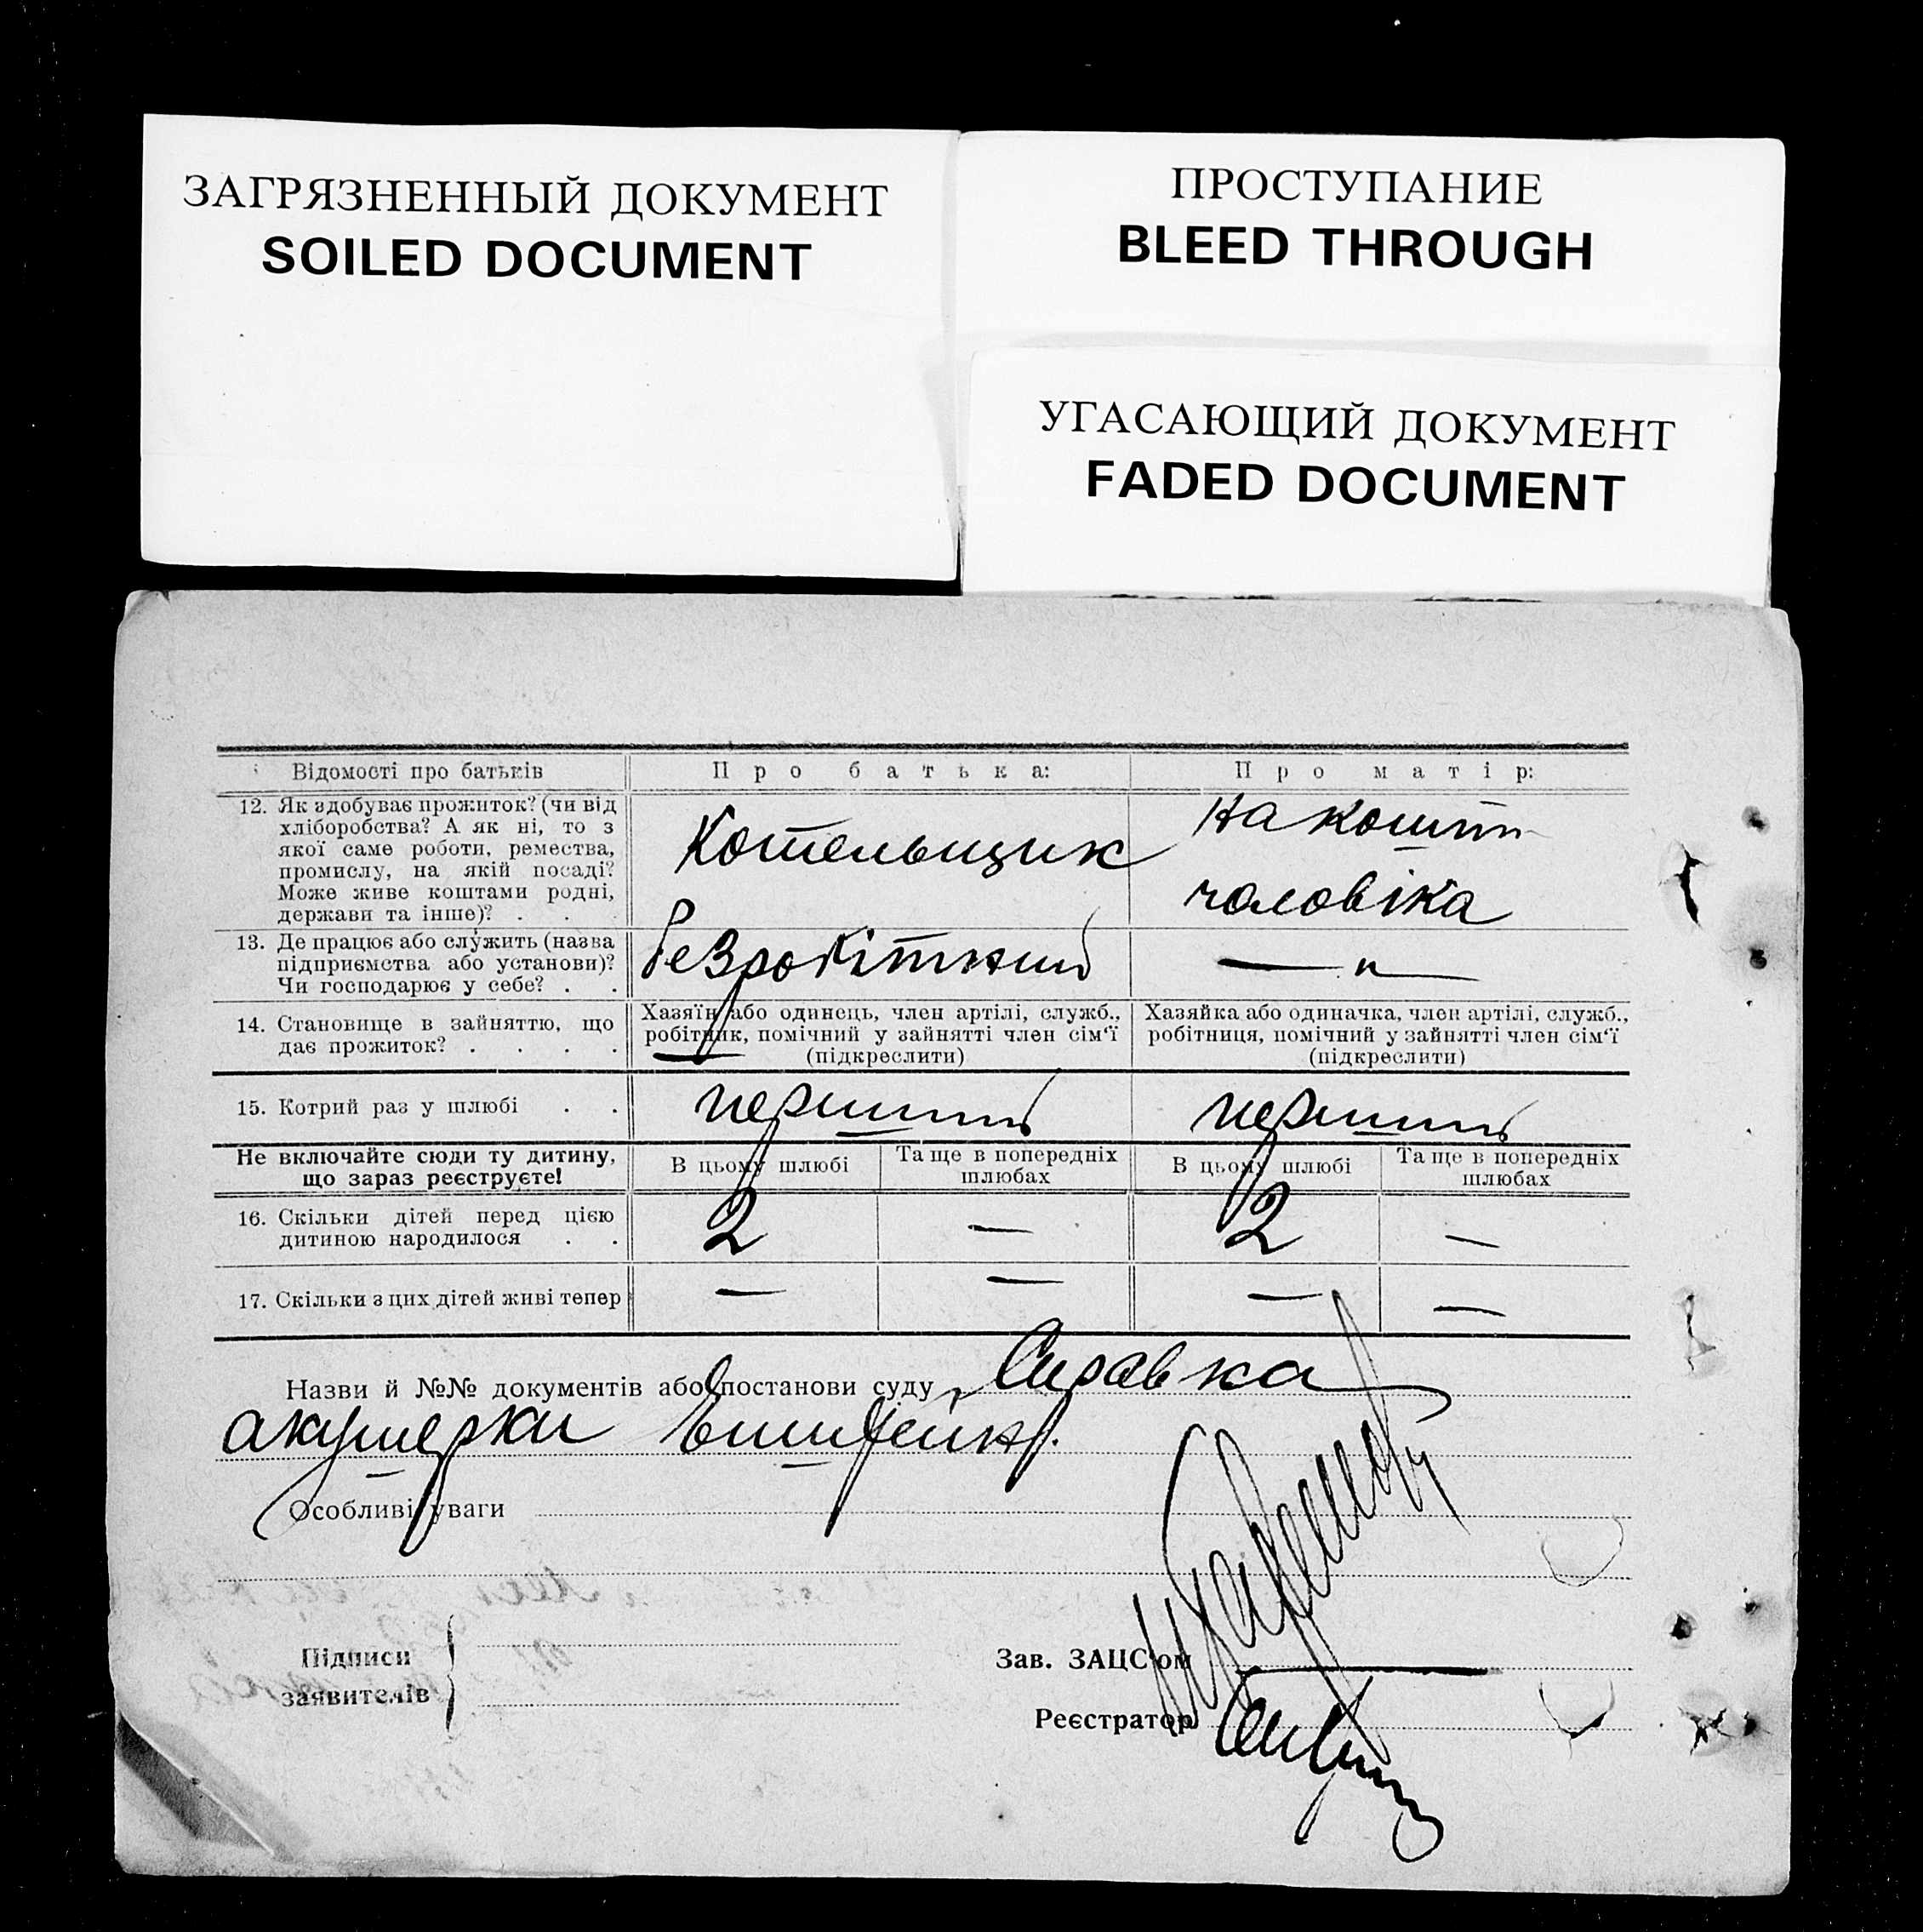 ЗАГРЯЗНЕННЫЙ ДОКУМЕНТ
SOILED DOCUMENT
ПРОСТУПАНИЕ
BLEED THROUGH
УГАСАЮЩИЙ ДОКУМЕНТ
FADED DOCUMENT
Відомості про батьків
Про батька:
Про матір:
12. Як здобуває прожиток? (чи від
хліборобства? А як ні, то з
якої саме роботи, ремества,
промислу, на якій посаді?
Може живе коштами родні,
держави та інше)? . .
Котельщик
на кошти
чоловіка
13. Де працює або служить (назва
підприємства або установи)?
Чи господарює у себе? . .
безробітний
— " —
14. Становище в зайняттю, що
дає прожиток? . . . .
Хазяїн або одинець, член артілі, служб.,
робітник, помічний у зайнятті член сім'ї
(підкреслити)
Хазяйка або одиначка, член артілі, служб.,
робітниця, помічний у зайнятті член сім'ї
(підкреслити)
15. Котрий раз у шлюбі . .
перший
перший
Не включайте сюди ту дитину,
що зараз реєструєте!
В цьому шлюбі
Та ще в попередніх
шлюбах
В цьому шлюбі
Та ще в попередніх
шлюбах
16. Скільки дітей перед цією
дитиною народилося . .
2
—
2
—
17. Скільки з цих дітей живі тепер
—
—
—
—
Назви й №№ документів або постанови суду Справка
акушерки
Особливі уваги
Підписи
заявителів
Зав. ЗАЦС'ом
Реєстратор